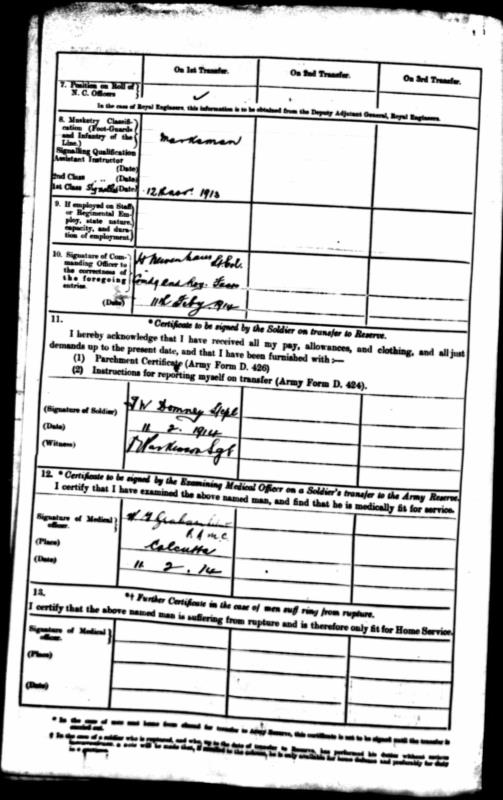 On 1st Transfer. On 2nd Transfer. On 3rd Transfer.
7. Position on Roll of
N. C. Officers
In the case of Royal Engineers, this information is to be obtained from the Deputy Adjutant General, Royal Engineers.
8. Musketry Classifi-
cation (Foot-Guards
and Infantry of the
Line.)
Marksman
Signalling Qualification
Assistant Instructor
(Date)
2nd Class ,, (Date)
1st Class (Date) 1913
9. If employed on Staff
or Regimental Em-
ploy, state nature,
capacity, and dura-
tion of employment.
10. Signature of Com-
manding Officer to
the correctness of
the foregoing
entries.
Lt Col.
Comdg
(Date) 11th Feby. 1914
11. * Certificate to be signed by the Soldier on transfer to Reserve.
I hereby acknowledge that I have received all my pay, allowances, and clothing, and all just
demands up to the present date, and that I have been furnished with :—
(1) Parchment Certificate (Army Form D. 426)
(2) Instructions for reporting myself on transfer (Army Form D. 424).
(Signature of Soldier) W Domney
(Date) 11. 2. 1914
(Witness) Parkinson Sgt
12. * Certificate to be signed by the Examining Medical Officer on a Soldier's transfer to the Army Reserve.
I certify that I have examined the above named man, and find that he is medically fit for service.
Signature of Medical
officer.
Graham
R.A.M.C.
(Place) Calcutta
(Date) 11. 2. 14
13. *† Further Certificate in the case of men suff ring from rupture.
I certify that the above named man is suffering from rupture and is therefore only fit for Home Service.
Signature of Medical
officer.
(Place)
(Date)
* In the case of men sent home from abroad for transfer to Army Reserve, this certificate is not to be signed until the transfer is
carried out.
† In the case of a soldier who is ruptured, and who up to the date of transfer to Reserve, has performed his duties without serious
inconvenience a note will be made that, if recalled to the colours, he is only available for home defence and preferably for duty
in a garrison.